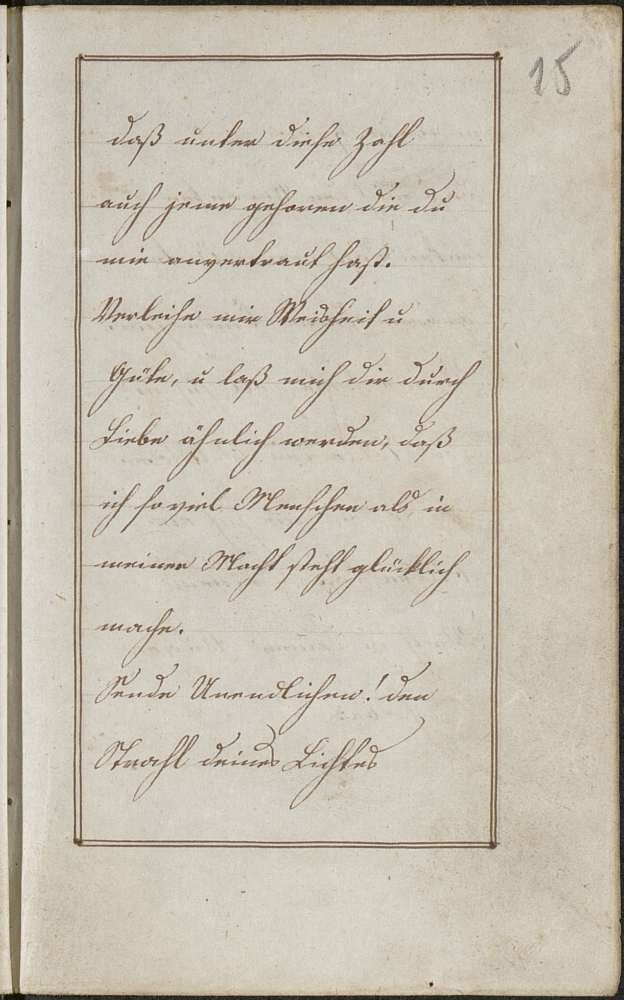 15
daß unter diese Zahl
auch jene gehoren die du
mir anvertraut hast.
Verleihe mir Weisheit u
Güte, u laß mich dir durch
Liebe ähnlich werden, daß
ich soviel Menschen als in
meiner Macht steht glücklich
mache.
Sende Unendlicher! den
Strahl deines Lichtes